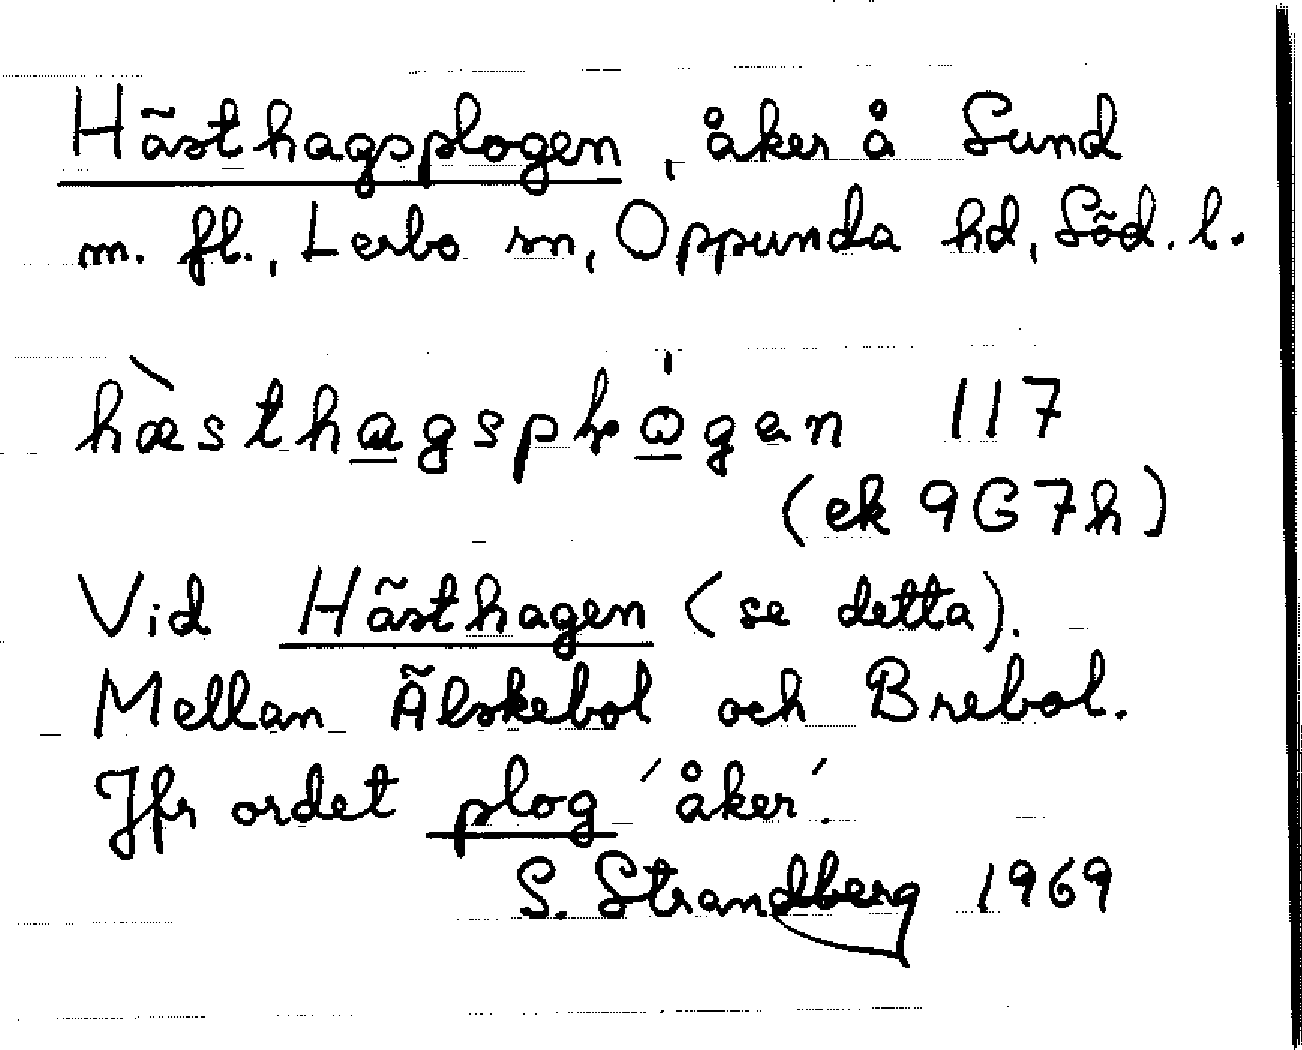 Hästhagsplogen, åker å Sund
m. fl., Lerbo sn, Oppunda hd, Söd. l.
hæ̀sthagsplógen 117
(ek 9G7h)
Vid Hästhagen (se detta).
Mellan Älskebol och Brebol.
Jfr ordet plog ´åker´.
S. Strandberg 1969